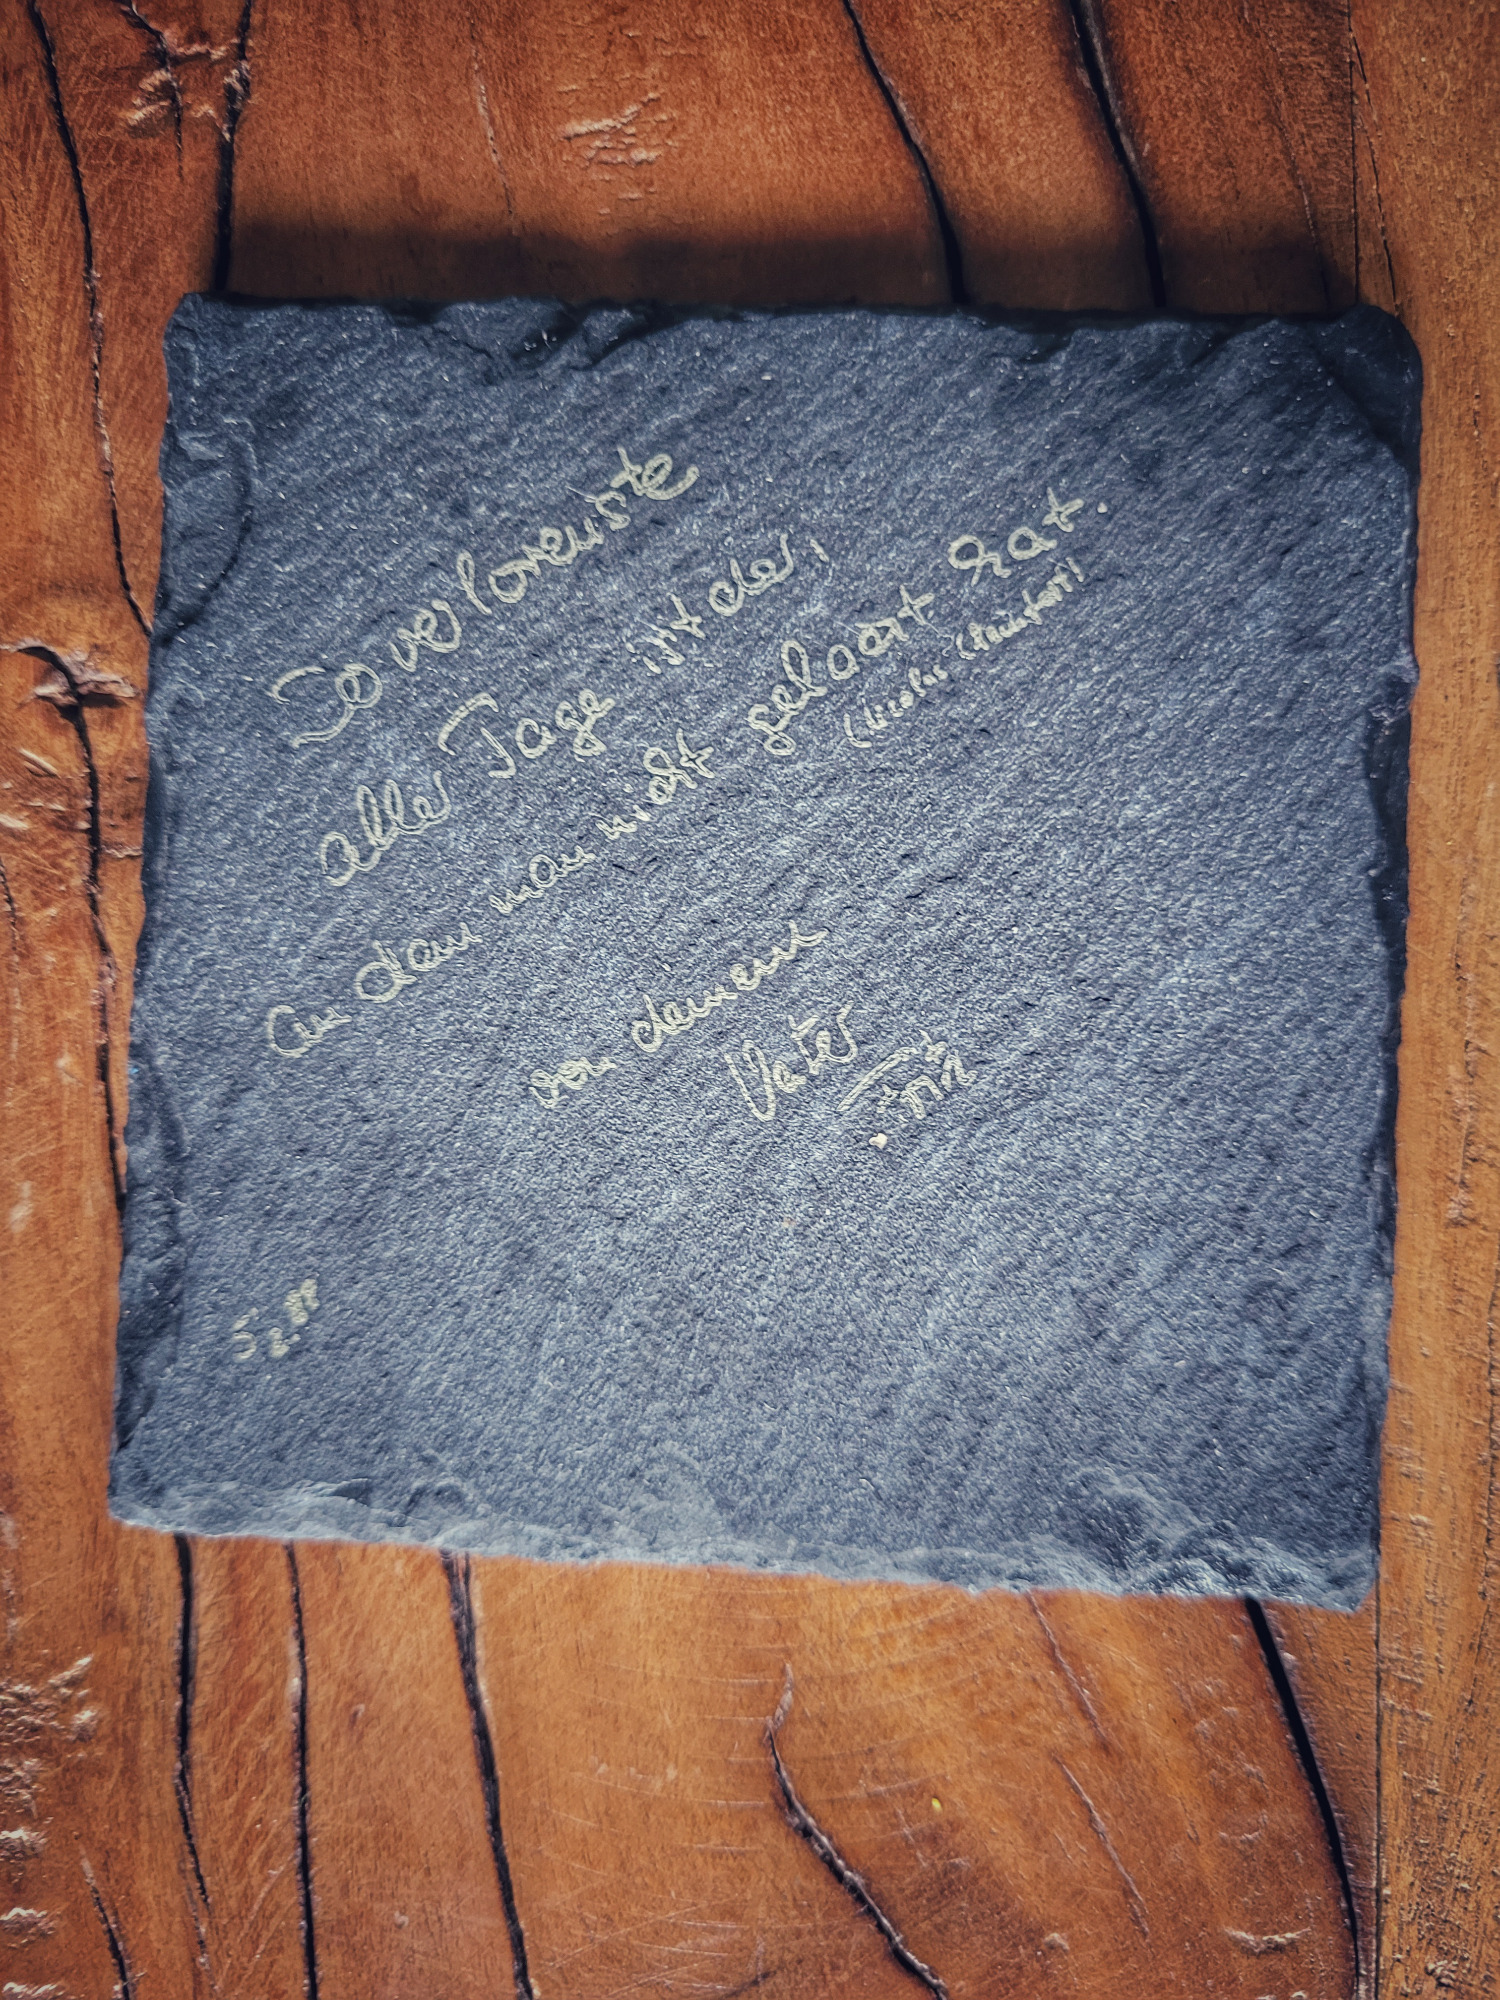 Der verlorenste
aller Tage ist der,
an dem man nicht gelacht hat.
(Nicolas Chamfort)
von deinem
Vater
5.2.89